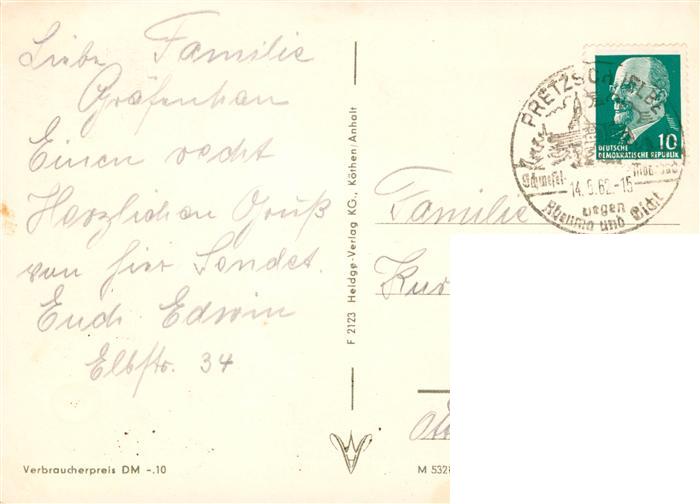 Liebe Familie
Gräfenhan
Einen recht
Herzlichen Gruß
von hier Sendet.
Euch Edwin
Elbstr. 34
Verbraucherpreis DM -.10
F 2123 Heldge-Verlag KG., Köthen/Anhalt
M 532
PRETZSCH (ELBE)
14.5.62.-15
gegen
Rheuma und Gicht
10
DEUTSCHE
DEMOKRATISCHE REPUBLIK
Familie
Kur